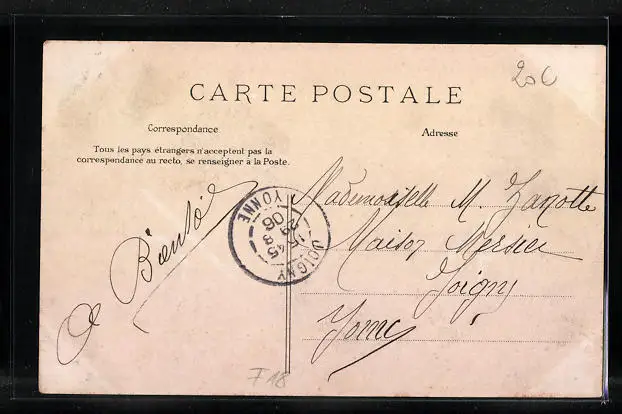 20c
CARTE POSTALE
Correspondance
Adresse
Tous les pays étrangers n'acceptent pas la
correspondance au recto, se renseigner à la Poste.
A Bientôt
JOIGNY
15 45
29 3
06
YONNE
Mademoiselle M. Zanotte
Maison Mersier
Joigny
Yonne
F18